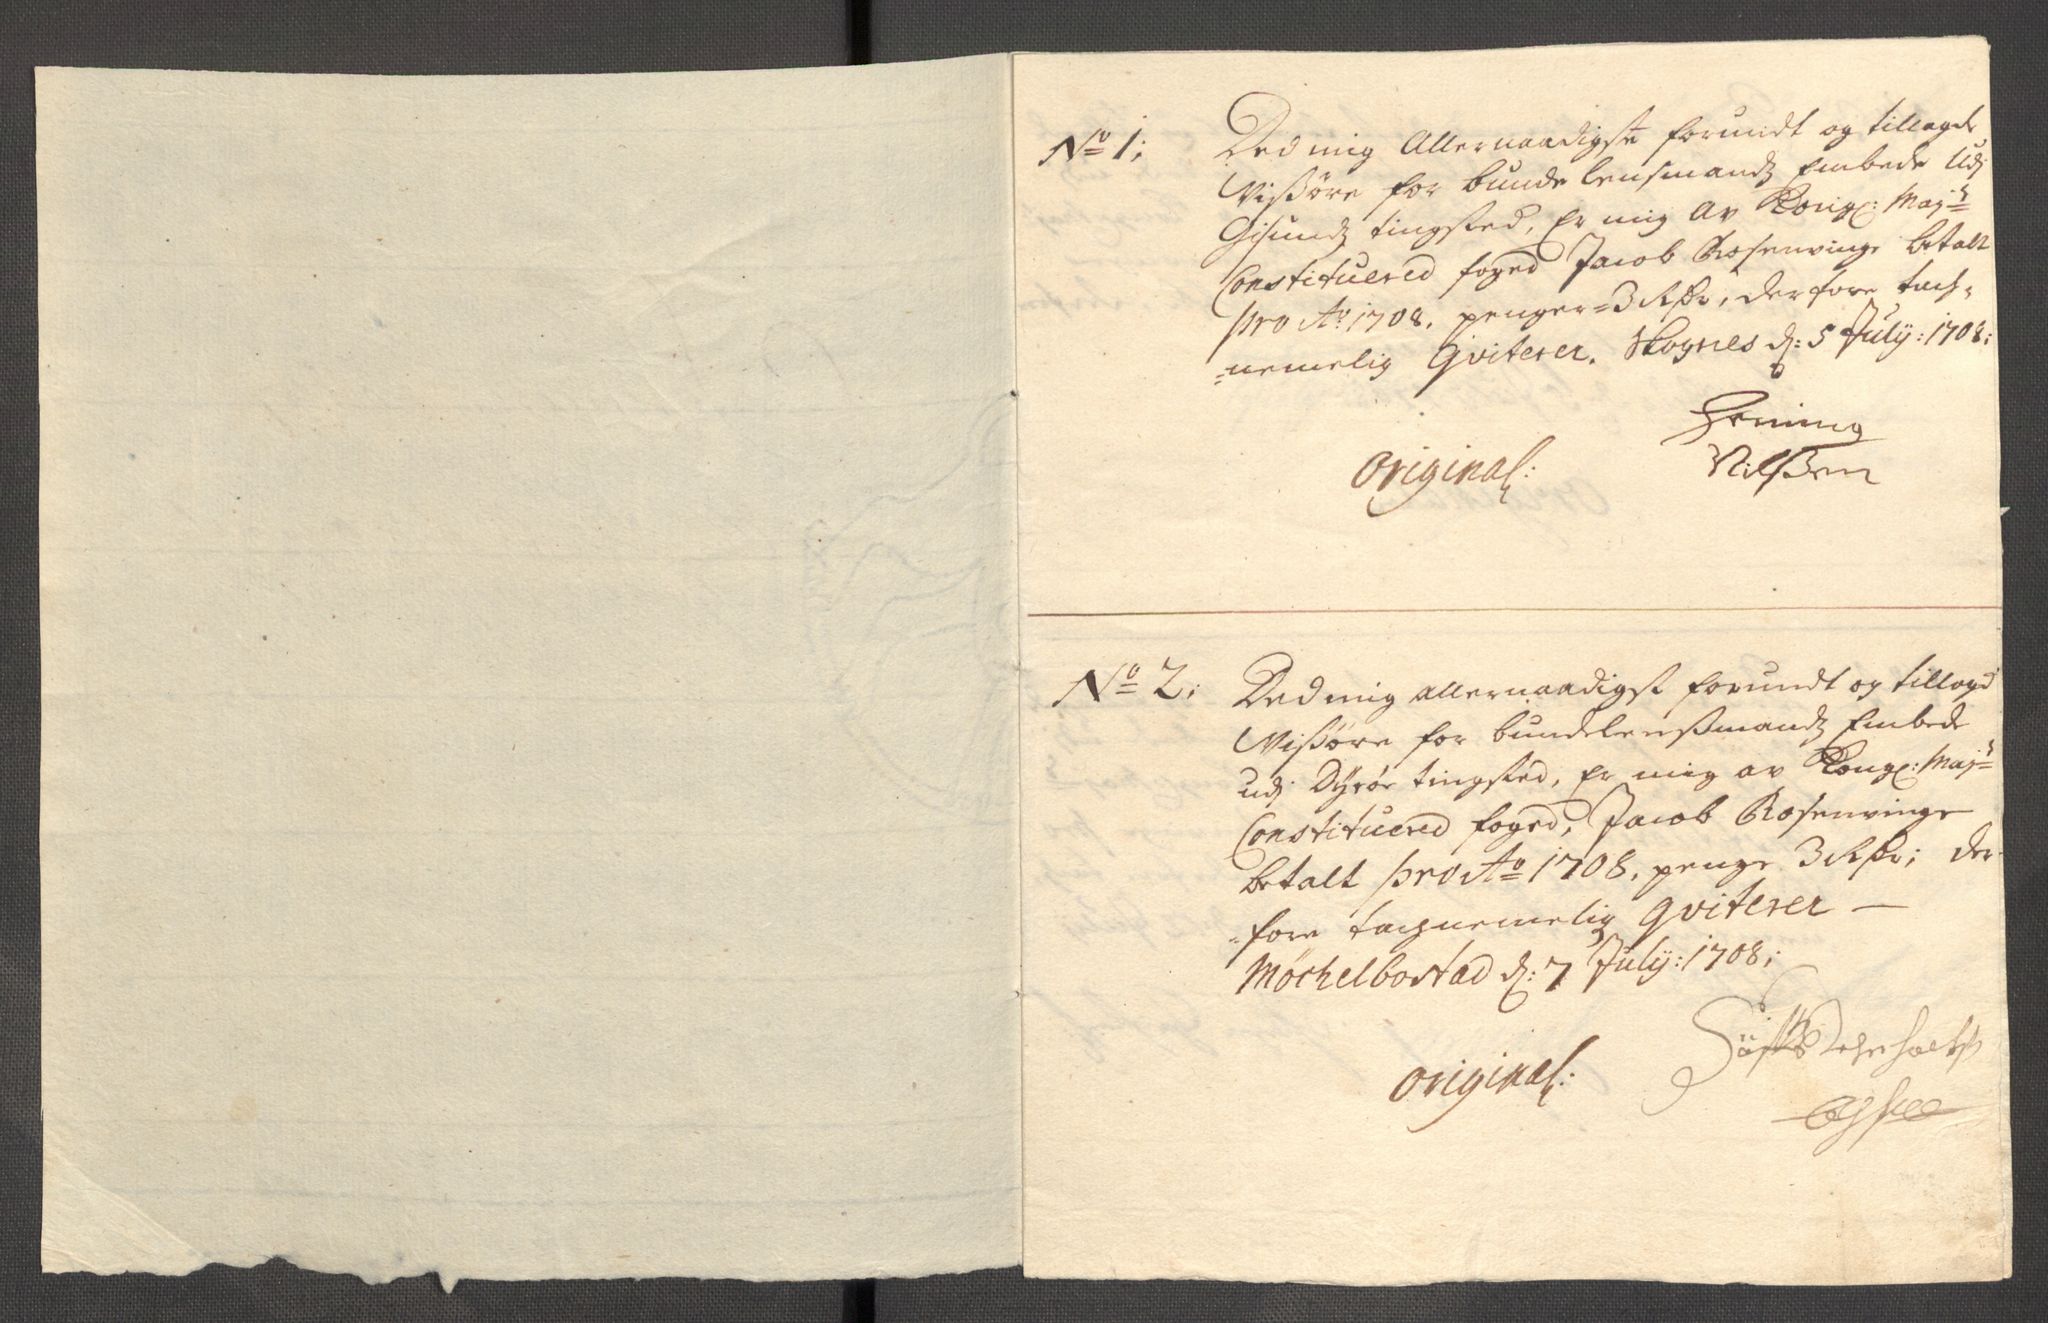 No 1;
Ded mig Allernaadigste forundt og tillagde
Visøre for bunde lensmandz Embede Udj
Gisundz tingsted, Er mig Av Kongl: Mayts
Constituered foged Jacob Rosenvinge betalt
pro Ao 1708. penger = 3 Rdr, derfore tach=
=nemelig Qviterer. Skognes d: 5 July: 1708:
Hening
Nilssen
Original:
No 2;
Ded mig allernaadigst forundt og tillagd
Visøre for bundelenssmandz Embede
udj Dyrøe tingsted, Er mig av Kongl: Mayts
Constituered foged, Jacob Rosenvinge
betalt pro Ao 1708, penge 3 Rdr; der
=fore tachnemelig Qviterer —
Mochelbostad d: 7 July: 1708;
Original: